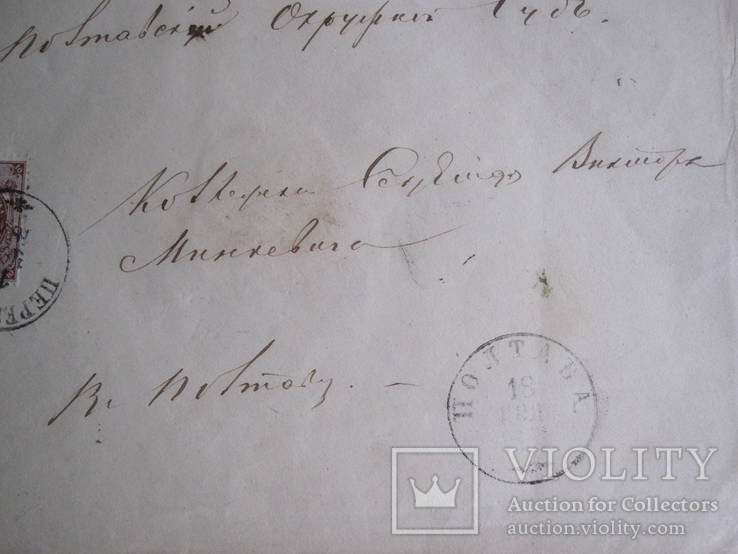 Полтавский Окружный Судъ.
Виктора
Минкевича
Въ Полтаву. —
ПЕРЕ
ПОЛТАВА
18
VIOLITY
Auction for Collectors
auction.violity.com